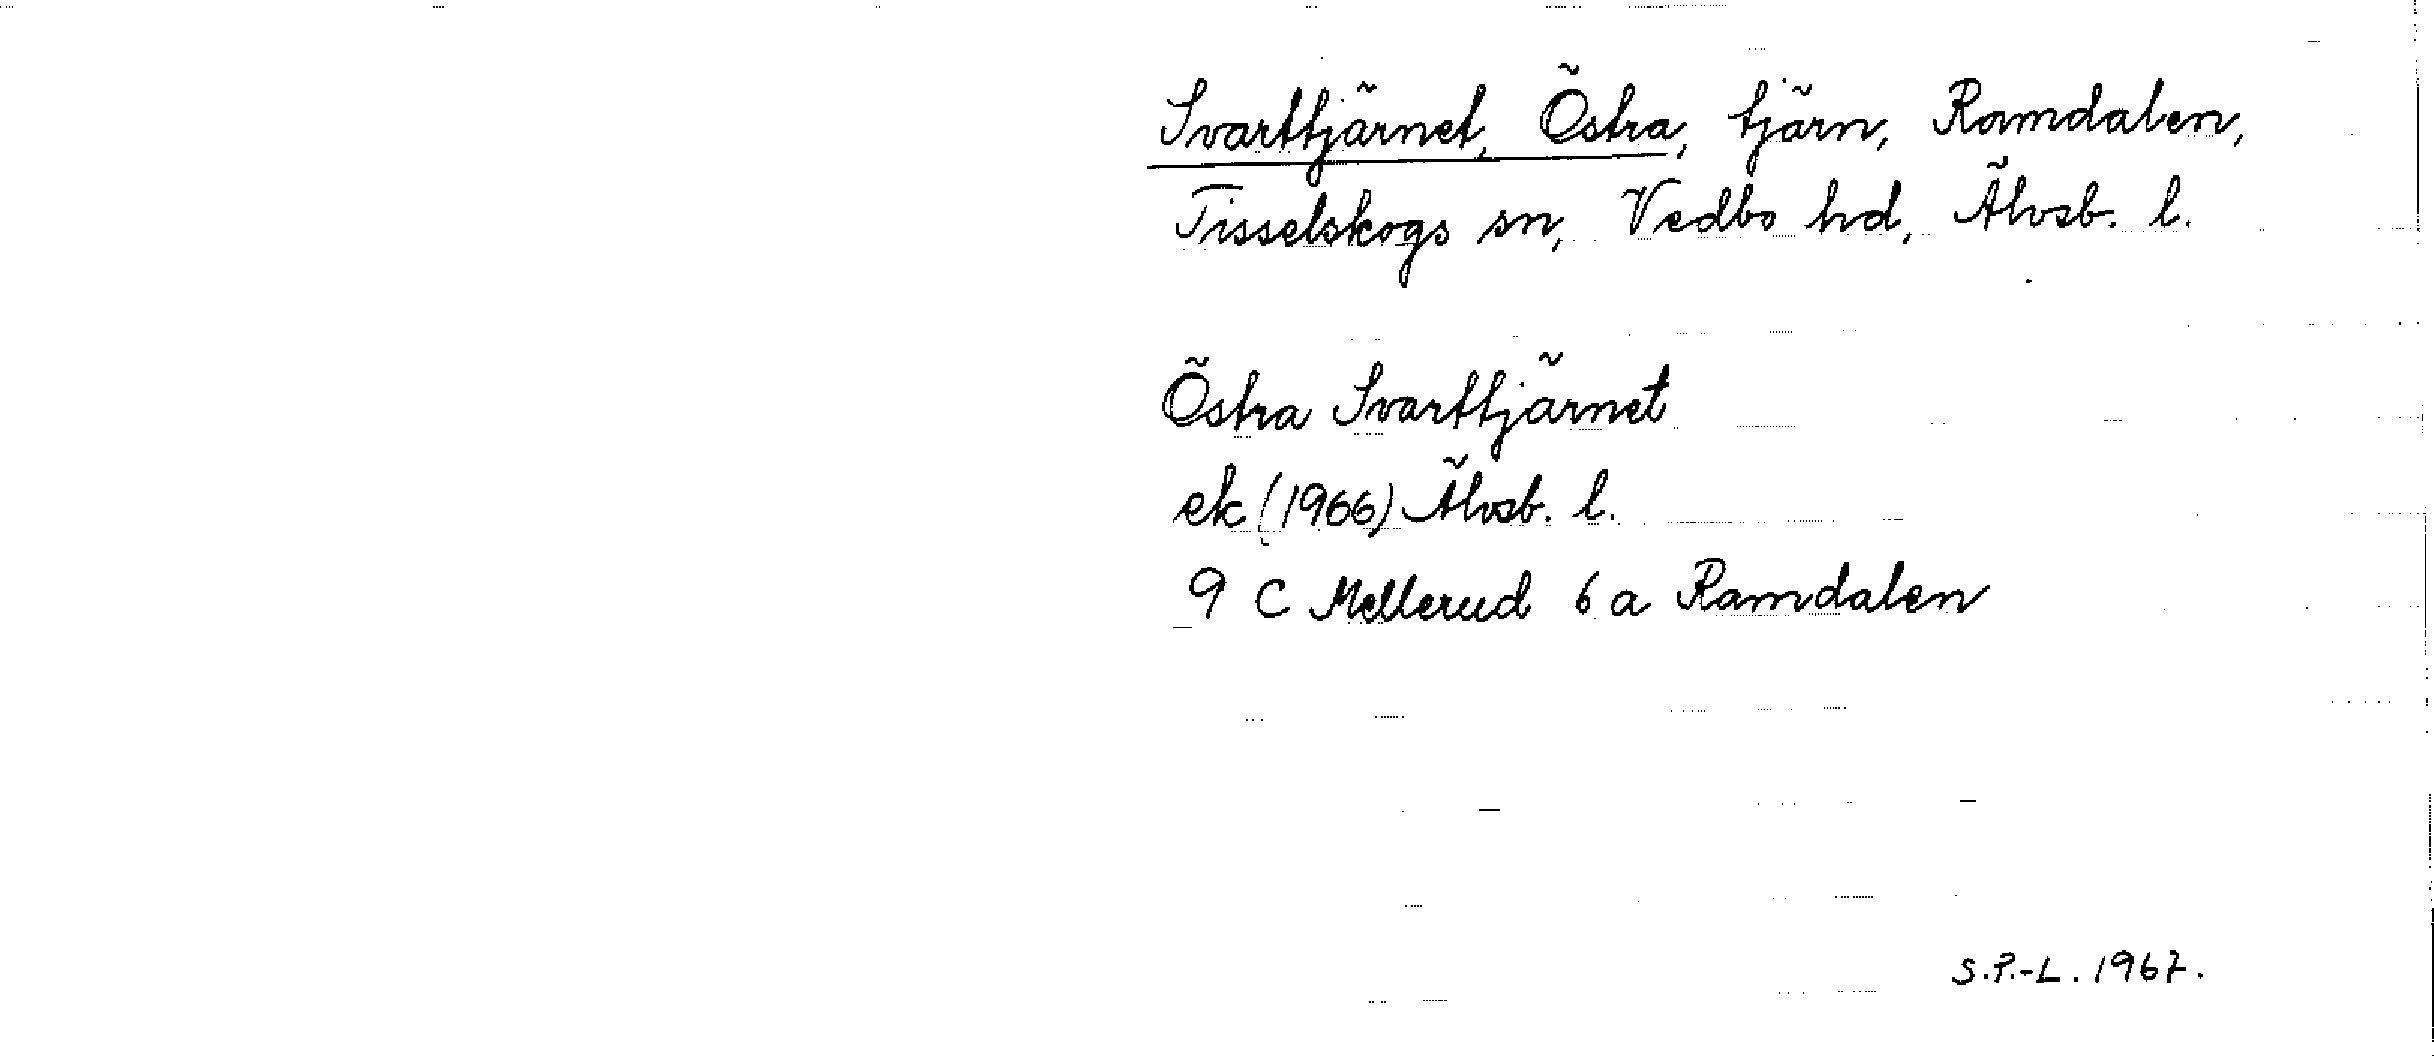 Svarttjärnet, Östra, tjärn, Ramdalen,
Tisselskogs sn, Vedbo hd, Älvsb. l.
Östra Svarttjärnet
ek (1966) Älvsb. l.
9 C Mellerud 6 a Ramdalen
S.P.-L. 1967.